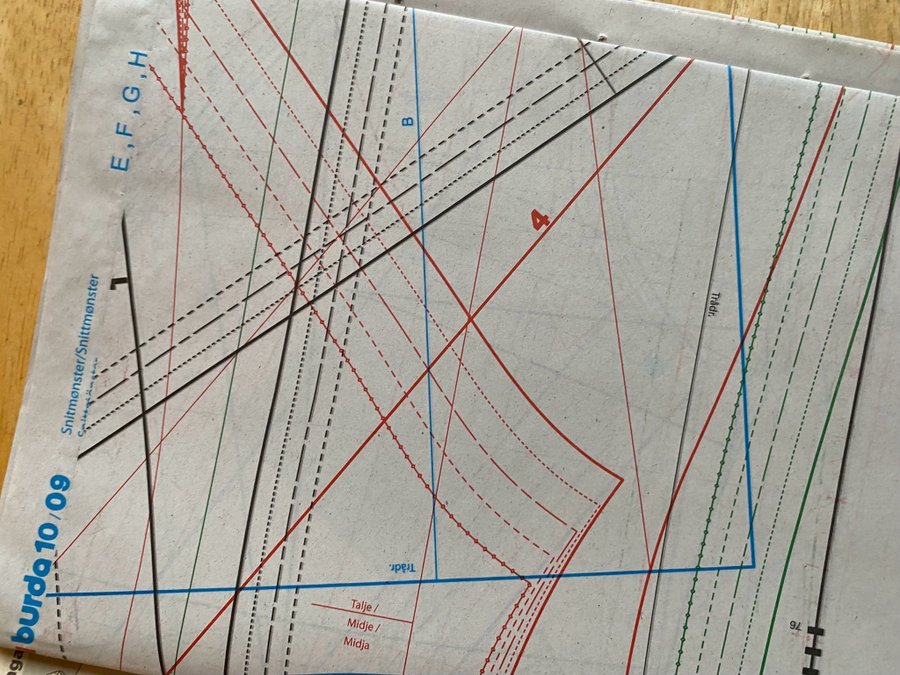 burda 10/09
Snitmønster/Snittmønster
E, F, G, H
1
B
4
Trådr.
Trådr.
Talje /
Midje /
Midja
76